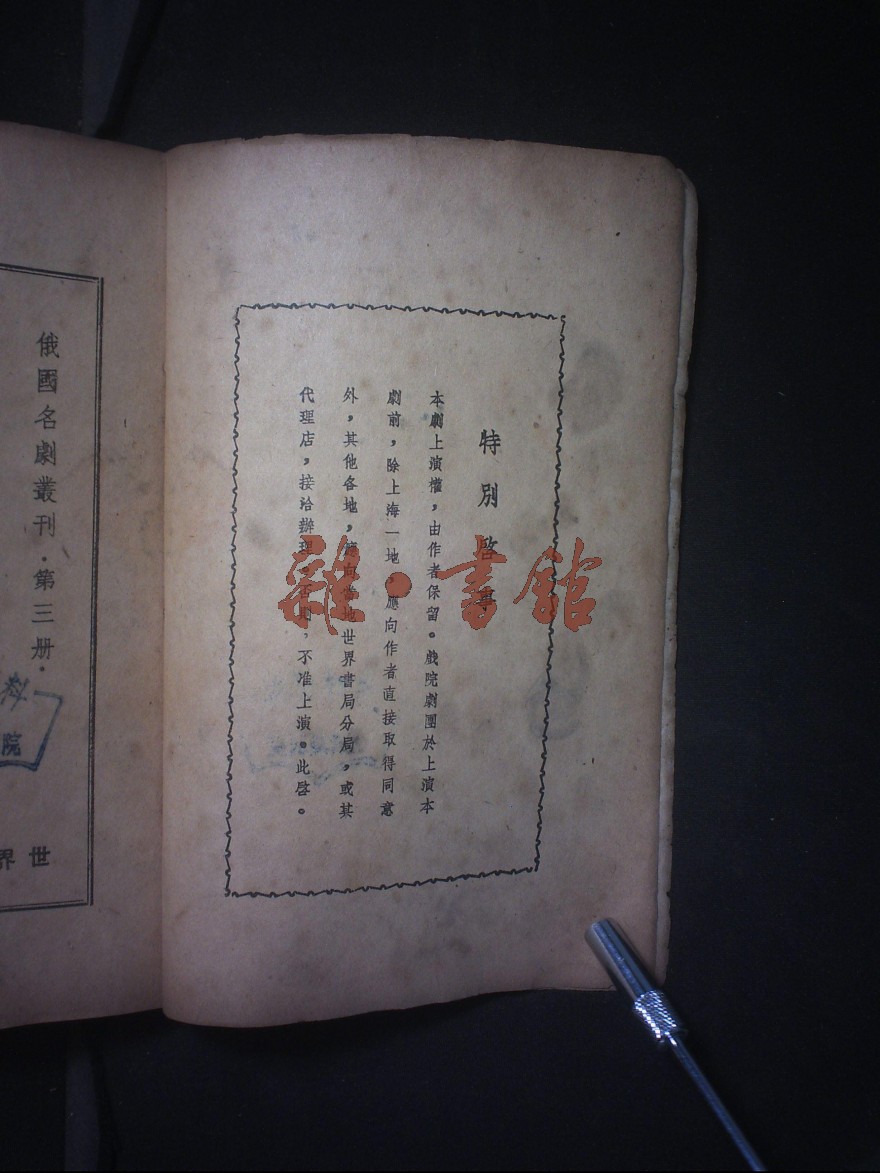 特別啓事
本劇上演權，由作者保留。戲院劇團於上演本
劇前，除上海一地，應向作者直接取得同意
外，其他各地，應向當地世界書局分局，或其
代理店，接洽辦理。否則，不准上演。此啓。
俄國名劇叢刊·第三册·
世界
科
院
雜·書館